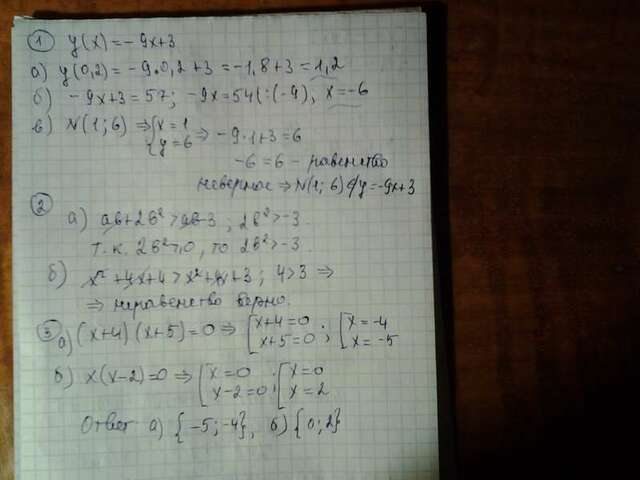 ① y(x) = -9x+3
а) y(0,2) = -9·0,2+3 = -1,8+3 = 1,2
б) -9x+3=57; -9x=54(:(-9), x=-6
в) N(1;6) ⇒ {x=1 y=6 ⇒ -9·1+3=6
-6=6 - равенство
неверное ⇒ N(1;6)∉y=-9x+3
② а) ab+2b²>ab-3; 2b²>-3.
т.к. 2b²⩾0, то 2b²>-3.
б) x²+4x+4>x²+4x+3; 4>3 ⇒
⇒ неравенство верно.
③ а) (x+4)(x+5)=0 ⇒ [x+4=0 x+5=0; [x=-4 x=-5
б) x(x-2)=0 ⇒ [x=0 x-2=0; [x=0 x=2
Ответ а) {-5;-4}, б) {0;2}